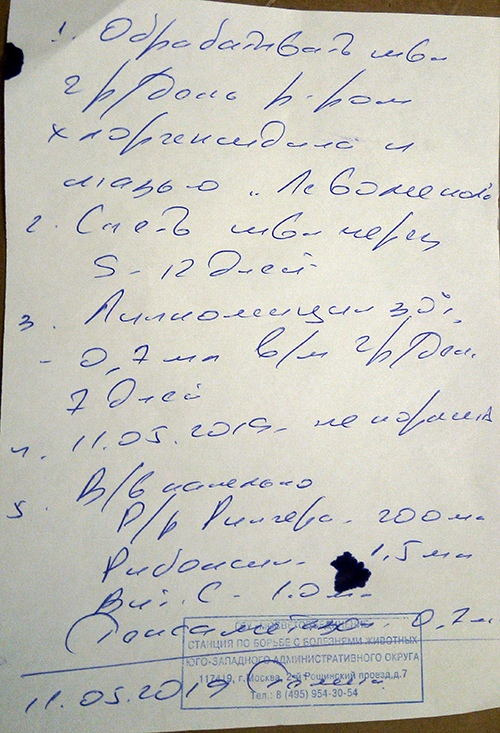 1. Обрабатывать швы
2 р/день р-ром
хлоргексидина и
мазью "Левомеколь"
2. Снять швы через
5-12 дней
3. Линкомицин 30%
- 0,7 мл в/м 2 р/день
7 дней
4. 11.05.2019г. не кормить
5. В/в капельно
Р/р Рингера - 200 мл
Рибоксин - 1,5 мл
Вит. С - 1.0 мл
0,2 мл
СТАНЦИЯ ПО БОРЬБЕ С БОЛЕЗНЯМИ ЖИВОТНЫХ
ЮГО-ЗАПАДНОГО АДМИНИСТРАТИВНОГО ОКРУГА
117419, г. Москва, 2-й Рощинский проезд, д.7
Тел.: 8 (495) 954-30-54
11.05.2019